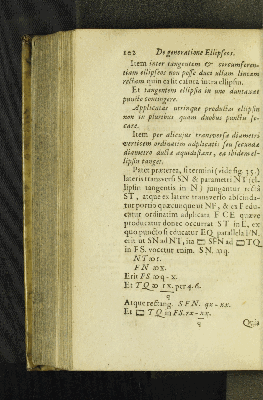 122 De generatione Ellipseos.
Item inter tangentem & circumferen-
tiam ellipseos non posse duci ullam lineam
rectam quin ea sit casura intra ellipsin.
Et tangentem ellipsin in uno duntaxat
puncto contingere.
Applicatas utrinque productas ellipsin
non in pluribus quam duobus punctis se-
care.
Item per alicujus transversæ diametri
verticem ordinatim adplicatis seu secundæ
diametro ducta æquidistans, ea ibidem el-
lipsin tanget.
Patet præterea, si termini (vide fig. 35.)
lateris transversi SN & parametri NT (el-
lipsin tangentis in N) jungantur rectâ
ST, atque ex latere transverso abscinda-
tur portio quæcunque ut NF, & ex F edu-
catur ordinatim adplicata FCE quæve
producatur donec occurrat ST in E, ex
quo puncto si educatur EQ parallela FN,
erit ut SN ad NT, ita ▭ SFN ad ▭ TQ
in FS. vocetur enim. SN. ∞q.
NT ∞r.
FN ∞x.
Erit FS ∞q - x.
Et TQ ∞ rx. per 4.6.
q
Atque rectang. SFN. qx - xx.
Et ▭ TQ in FS. rx - xx.
q